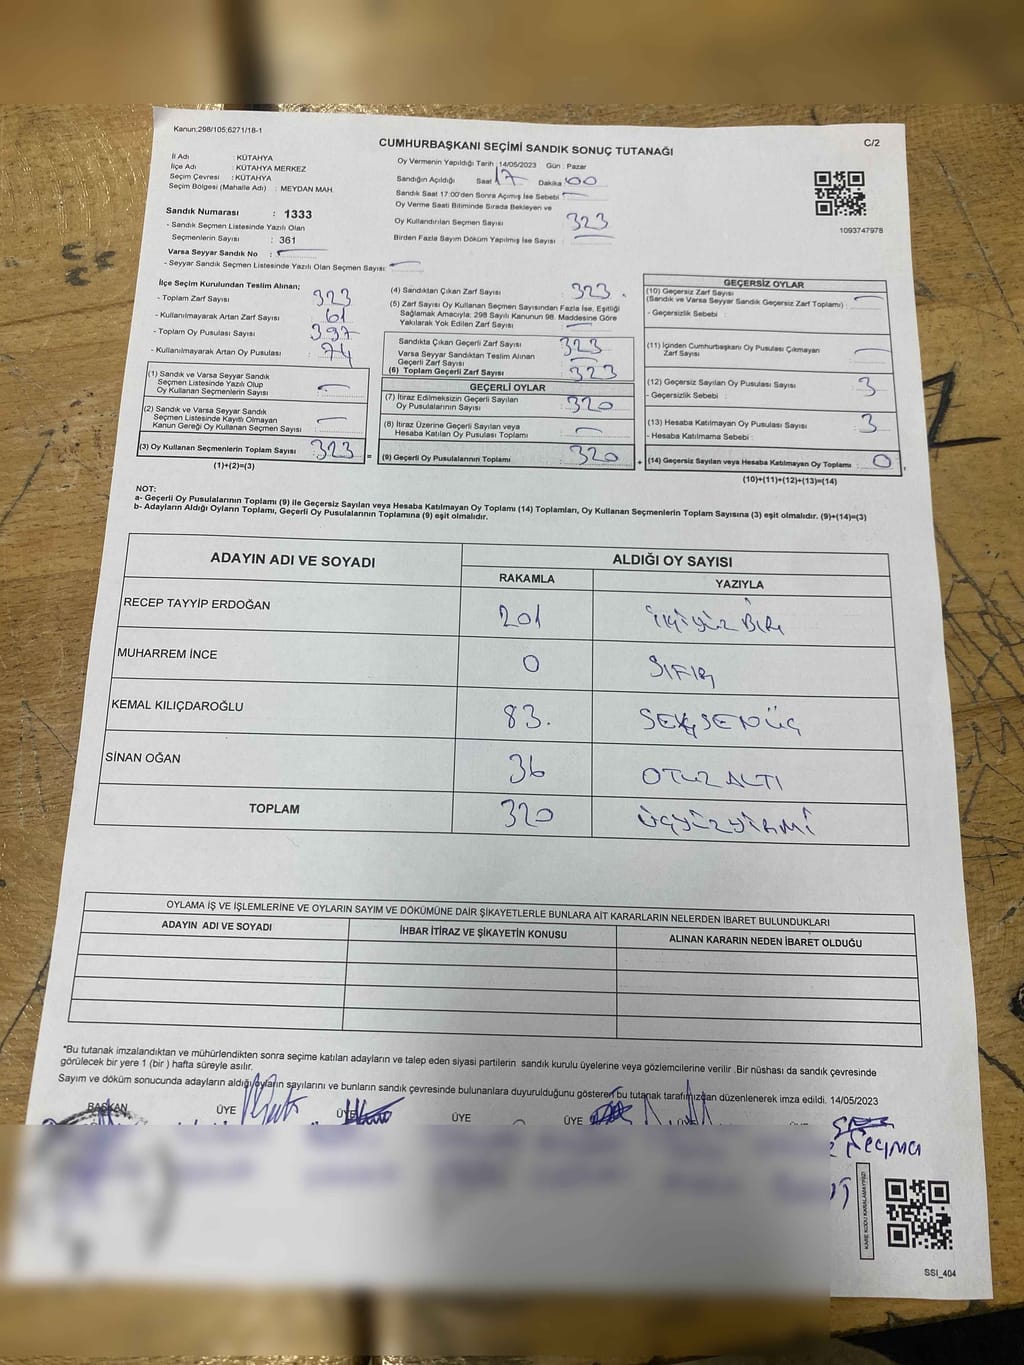 Kanun:298/105;6271/18-1
C/2
CUMHURBAŞKANI SEÇİMİ SANDIK SONUÇ TUTANAĞI
İl Adı : KÜTAHYA
İlçe Adı : KÜTAHYA MERKEZ
Seçim Çevresi : KÜTAHYA
Seçim Bölgesi (Mahalle Adı) : MEYDAN MAH.
Sandık Numarası : 1333
- Sandık Seçmen Listesinde Yazılı Olan
Seçmenlerin Sayısı : 361
Varsa Seyyar Sandık No :
- Seyyar Sandık Seçmen Listesinde Yazılı Olan Seçmen Sayısı:
Oy Vermenin Yapıldığı Tarih : 14/05/2023 Gün : Pazar
Sandığın Açıldığı Saat 17 Dakika :00
Sandık Saat 17:00'den Sonra Açımış İse Sebebi :
Oy Verme Saati Bitiminde Sırada Bekleyen ve
Oy Kullandırılan Seçmen Sayısı : 323
Birden Fazla Sayım Döküm Yapılmış İse Sayısı :
1093747978
İlçe Seçim Kurulundan Teslim Alınan;
- Toplam Zarf Sayısı : 323
- Kullanılmayarak Artan Zarf Sayısı : 61
- Toplam Oy Pusulası Sayısı : 397
- Kullanılmayarak Artan Oy Pusulası : 74
(1) Sandık ve Varsa Seyyar Sandık
Seçmen Listesinde Yazılı Olup
Oy Kullanan Seçmenlerin Sayısı :
(2) Sandık ve Varsa Seyyar Sandık
Seçmen Listesinde Kayıtlı Olmayan
Kanun Gereği Oy Kullanan Seçmen Sayısı :
(3) Oy Kullanan Seçmenlerin Toplam Sayısı : 323 =
(1)+(2)=(3)
(4) Sandıktan Çıkan Zarf Sayısı : 323.
(5) Zarf Sayısı Oy Kullanan Seçmen Sayısından Fazla İse, Eşitliği
Sağlamak Amacıyla; 298 Sayılı Kanunun 98. Maddesine Göre
Yakılarak Yok Edilen Zarf Sayısı :
Sandıkta Çıkan Geçerli Zarf Sayısı : 323
Varsa Seyyar Sandıktan Teslim Alınan
Geçerli Zarf Sayısı :
(6) Toplam Geçerli Zarf Sayısı : 323
GEÇERLİ OYLAR
(7) İtiraz Edilmeksizin Geçerli Sayılan
Oy Pusulalarının Sayısı : 320
(8) İtiraz Üzerine Geçerli Sayılan veya
Hesaba Katılan Oy Pusulası Toplamı :
(9) Geçerli Oy Pusulalarının Toplamı : 320 +
GEÇERSİZ OYLAR
(10) Geçersiz Zarf Sayısı
(Sandık ve Varsa Seyyar Sandık Geçersiz Zarf Toplamı) :
- Geçersizlik Sebebi :
(11) İçinden Cumhurbaşkanı Oy Pusulası Çıkmayan
Zarf Sayısı :
(12) Geçersiz Sayılan Oy Pusulası Sayısı : 3
- Geçersizlik Sebebi :
(13) Hesaba Katılmayan Oy Pusulası Sayısı : 3
- Hesaba Katılmama Sebebi :
(14) Geçersiz Sayılan veya Hesaba Katılmayan Oy Toplamı : 0
(10)+(11)+(12)+(13)=(14)
NOT:
a- Geçerli Oy Pusulalarının Toplamı (9) ile Geçersiz Sayılan veya Hesaba Katılmayan Oy Toplamı (14) Toplamları, Oy Kullanan Seçmenlerin Toplam Sayısına (3) eşit olmalıdır. (9)+(14)=(3)
b- Adayların Aldığı Oyların Toplamı, Geçerli Oy Pusulalarının Toplamına (9) eşit olmalıdır.
ADAYIN ADI VE SOYADI
ALDIĞI OY SAYISI
RAKAMLA YAZIYLA
RECEP TAYYİP ERDOĞAN 201 İKİYÜZ BİR
MUHARREM İNCE 0 SIFIR
KEMAL KILIÇDAROĞLU 83. SEKSENÜÇ
SİNAN OĞAN 36 OTUZ ALTI
TOPLAM 320 ÜÇYÜZYİRMİ
OYLAMA İŞ VE İŞLEMLERİNE VE OYLARIN SAYIM VE DÖKÜMÜNE DAİR ŞİKAYETLERLE BUNLARA AİT KARARLARIN NELERDEN İBARET BULUNDUKLARI
ADAYIN ADI VE SOYADI İHBAR İTİRAZ VE ŞİKAYETİN KONUSU ALINAN KARARIN NEDEN İBARET OLDUĞU
*Bu tutanak imzalandıktan ve mühürlendikten sonra seçime katılan adayların ve talep eden siyasi partilerin sandık kurulu üyelerine veya gözlemcilerine verilir .Bir nüshası da sandık çevresinde
görülecek bir yere 1 (bir ) hafta süreyle asılır.
Sayım ve döküm sonucunda adayların aldığı oyların sayılarını ve bunların sandık çevresinde bulunanlara duyurulduğunu gösteren bu tutanak tarafımızdan düzenlenerek imza edildi. 14/05/2023
BAŞKAN ÜYE ÜYE ÜYE ÜYE
KARE KODU KARALAMAYINIZ!
SSI_404